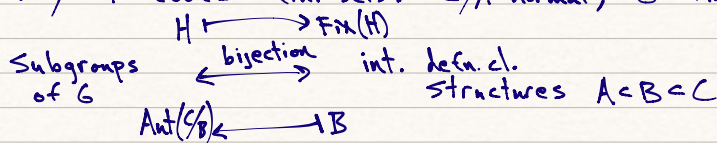 H ↦ Fix(H)
Subgroups of G ⟷ bijection int. defn. cl. structures A ⊂ B ⊂ C
Aut(C/B) ↤ B